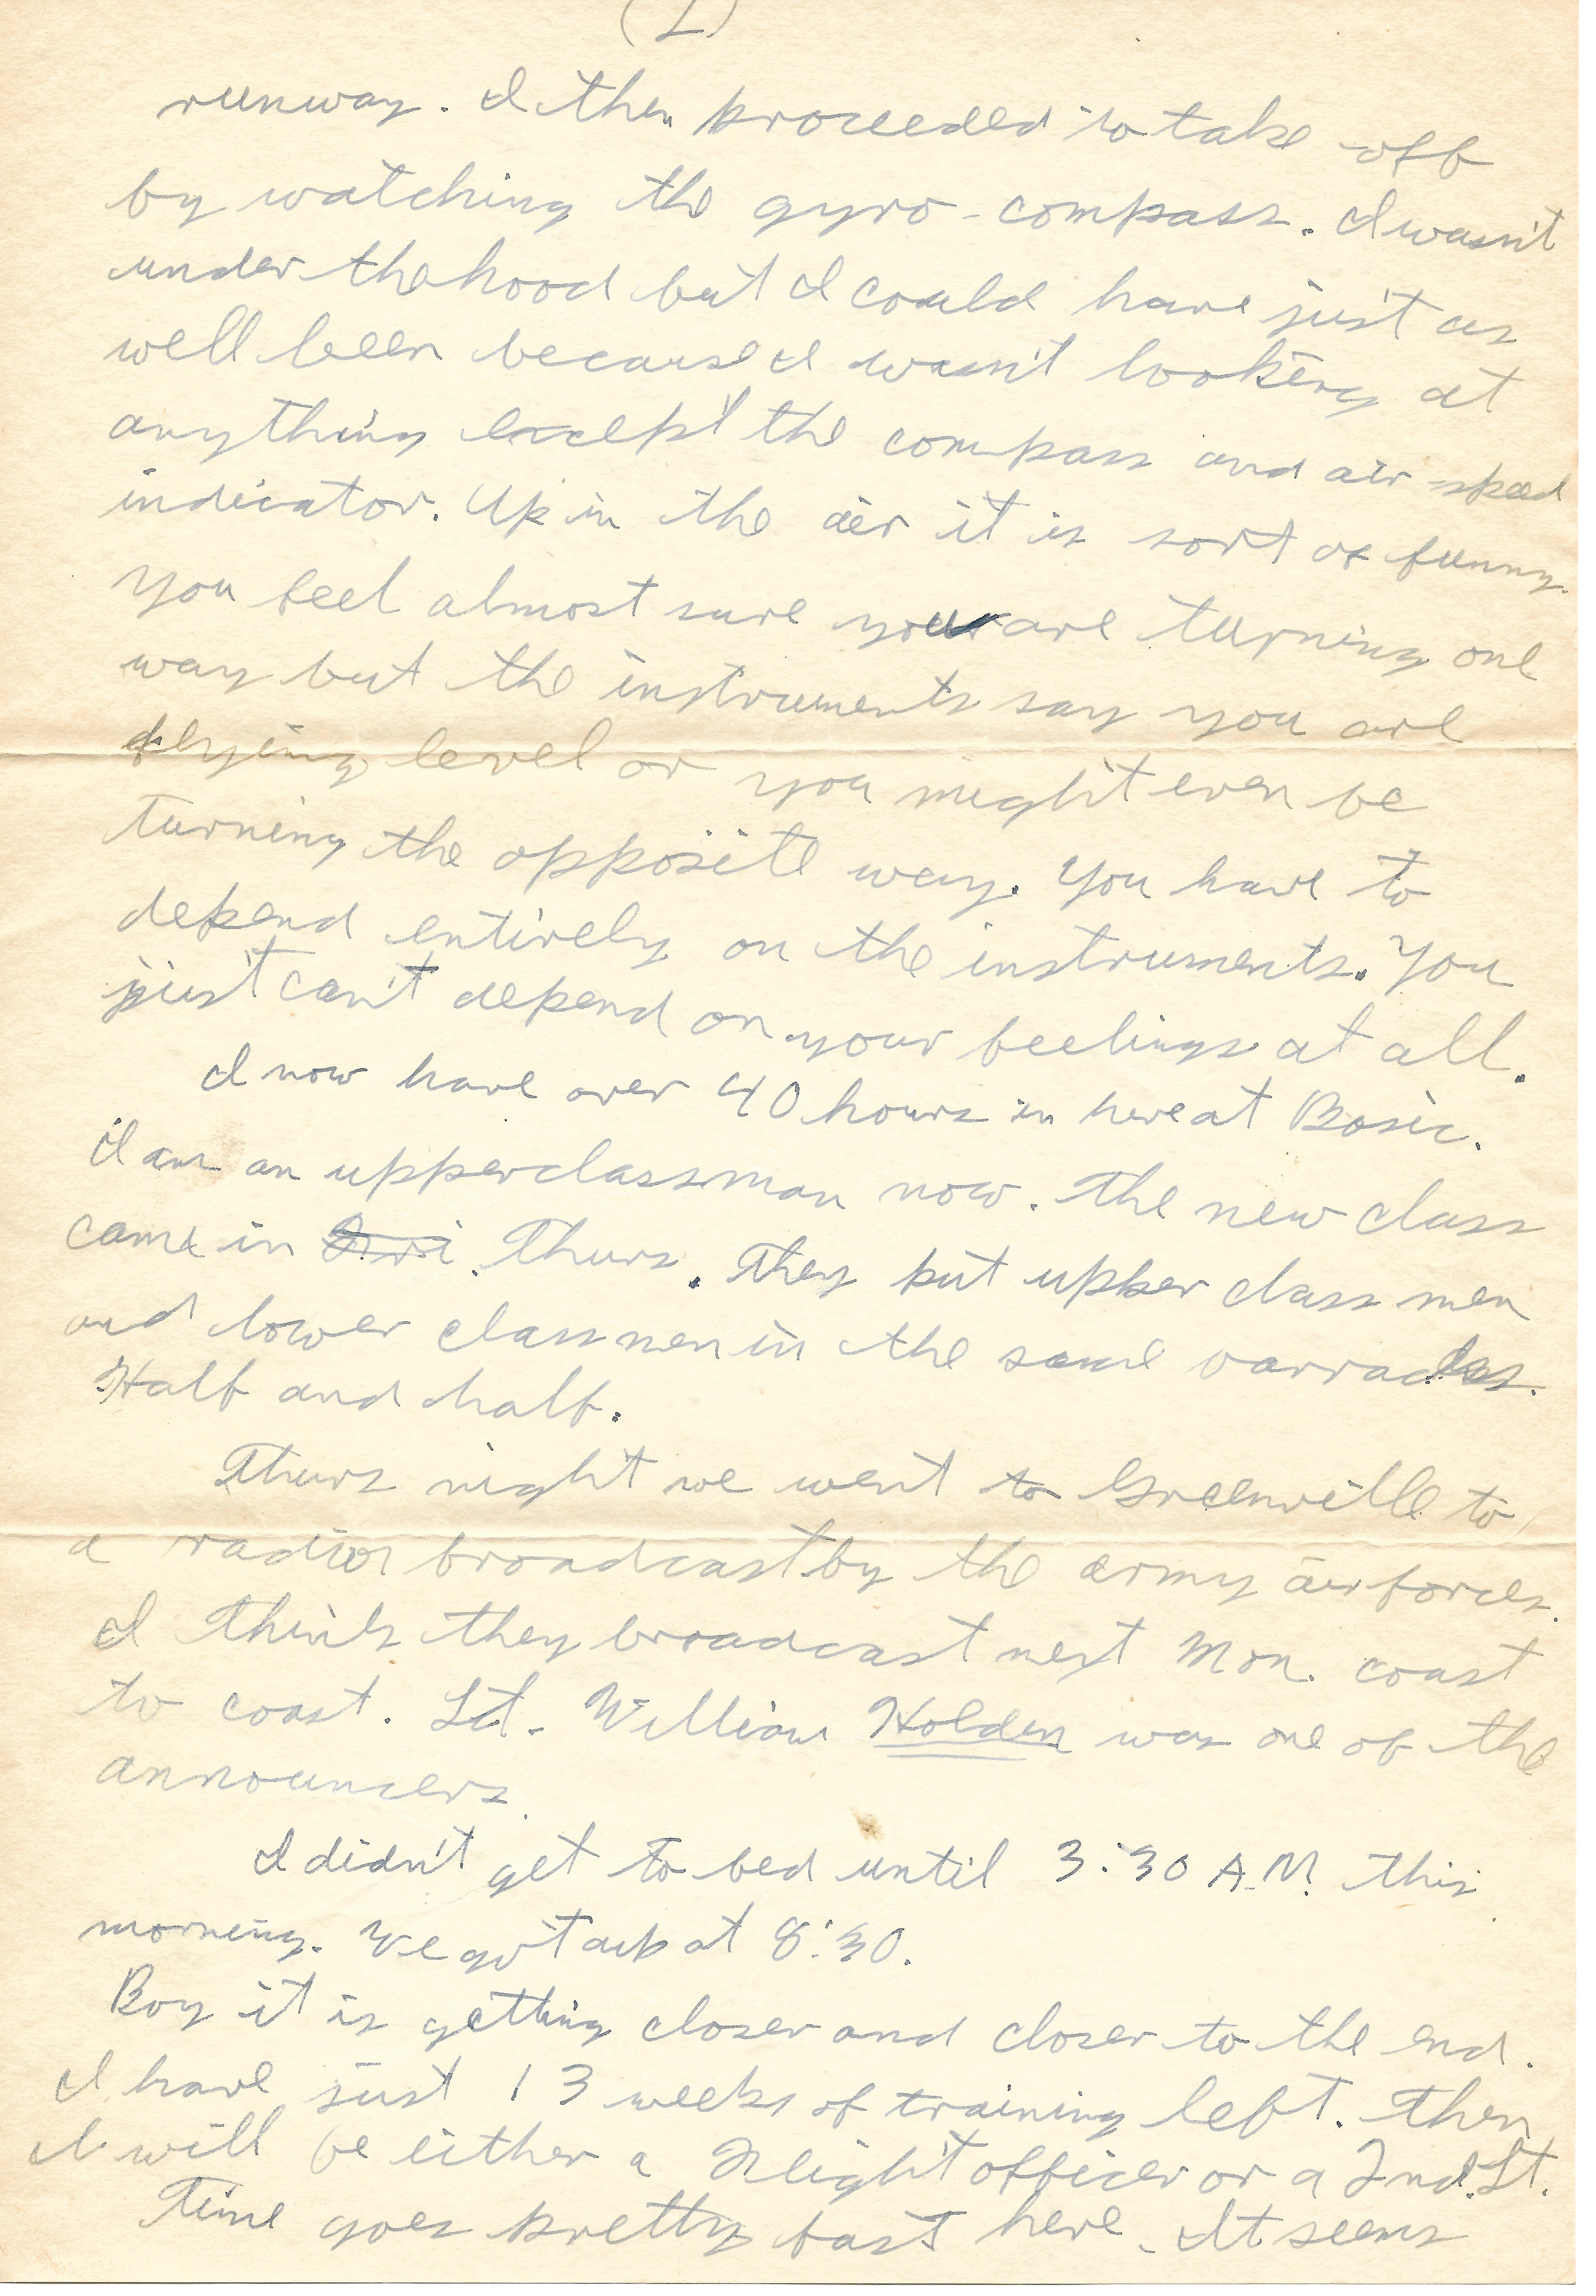 (2)
runway. I then proceeded to take off
by watching the gyro-compass. I wasn't
under the hood but I could have just as
well been because I wasn't looking at
anything except the compass and air speed
indicator. Up in the air it is sort of funny.
You feel almost sure you are turning one
way but the instruments say you are
flying level or you might even be
turning the opposite way. You have to
depend entirely on the instruments. You
just can't depend on your feelings at all.
I now have over 40 hours in here at Basic.
I am an upperclassman now. The new class
came in Fri. Thurs. They put upper class men
and lower class men in the same barracks.
Half and half.
Thurs night we went to Greenville to
a radio broadcast by the army air forces.
I think they broadcast next Mon. coast
to coast. Lt. William Holden was one of the
announcers.
I didn't get to bed until 3:30 A.M. this
morning. We got up at 8:30.
Boy it is getting closer and closer to the end.
I have just 13 weeks of training left. Then
I will be either a Flight officer or a 2nd. Lt.
Time goes pretty fast here. It seems